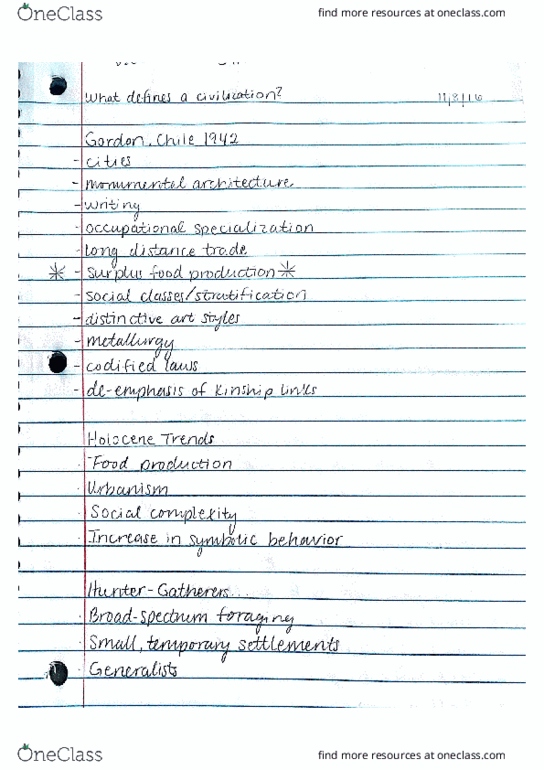 OneClass
find more resources at oneclass.com
What defines a civilization?
11/8/16
Gordon. Chile 1942
- cities
- monumental architecture.
- writing
- occupational specialization
- long distance trade
* - surplus food production *
- social classes/stratification
- distinctive art styles
- metallurgy
- codified laws
- de-emphasis of kinship links
Holocene Trends
· Food production
· Urbanism
· Social complexity
· Increase in symbolic behavior
Hunter-Gatherers...
· Broad-spectrum foraging
· Small, temporary settlements
· Generalists
OneClass
find more resources at oneclass.com